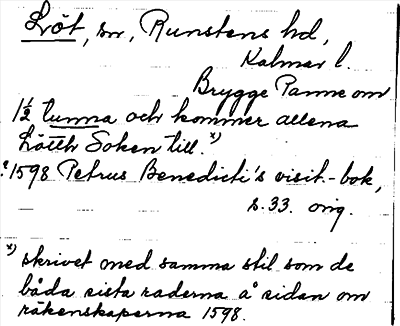 Löt, sn, Runstens hd,
Kalmar l.
Brygge Panne om
1½ tunna och kommer allena
Löttz Soken till. x)
? 1598 Petrus Benedicti's visit.-bok,
s. 33. orig.
x) skrivet med samma stil som de
båda sista raderna å sidan om
räkenskaperna 1598.